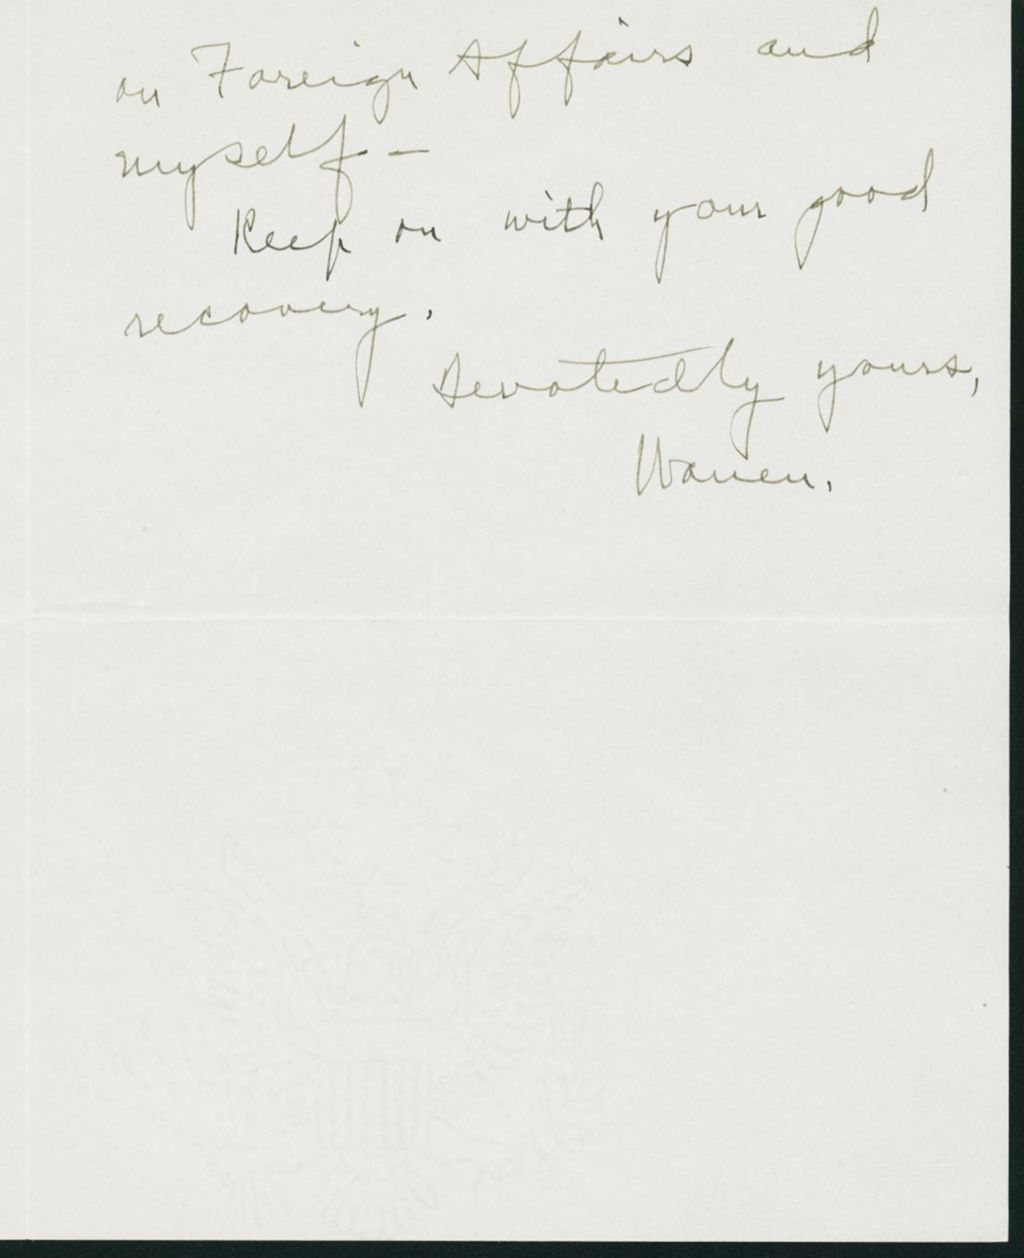 on Foreign Affairs and
myself –
Keep on with your good
recovery.
Devotedly yours,
Warren.